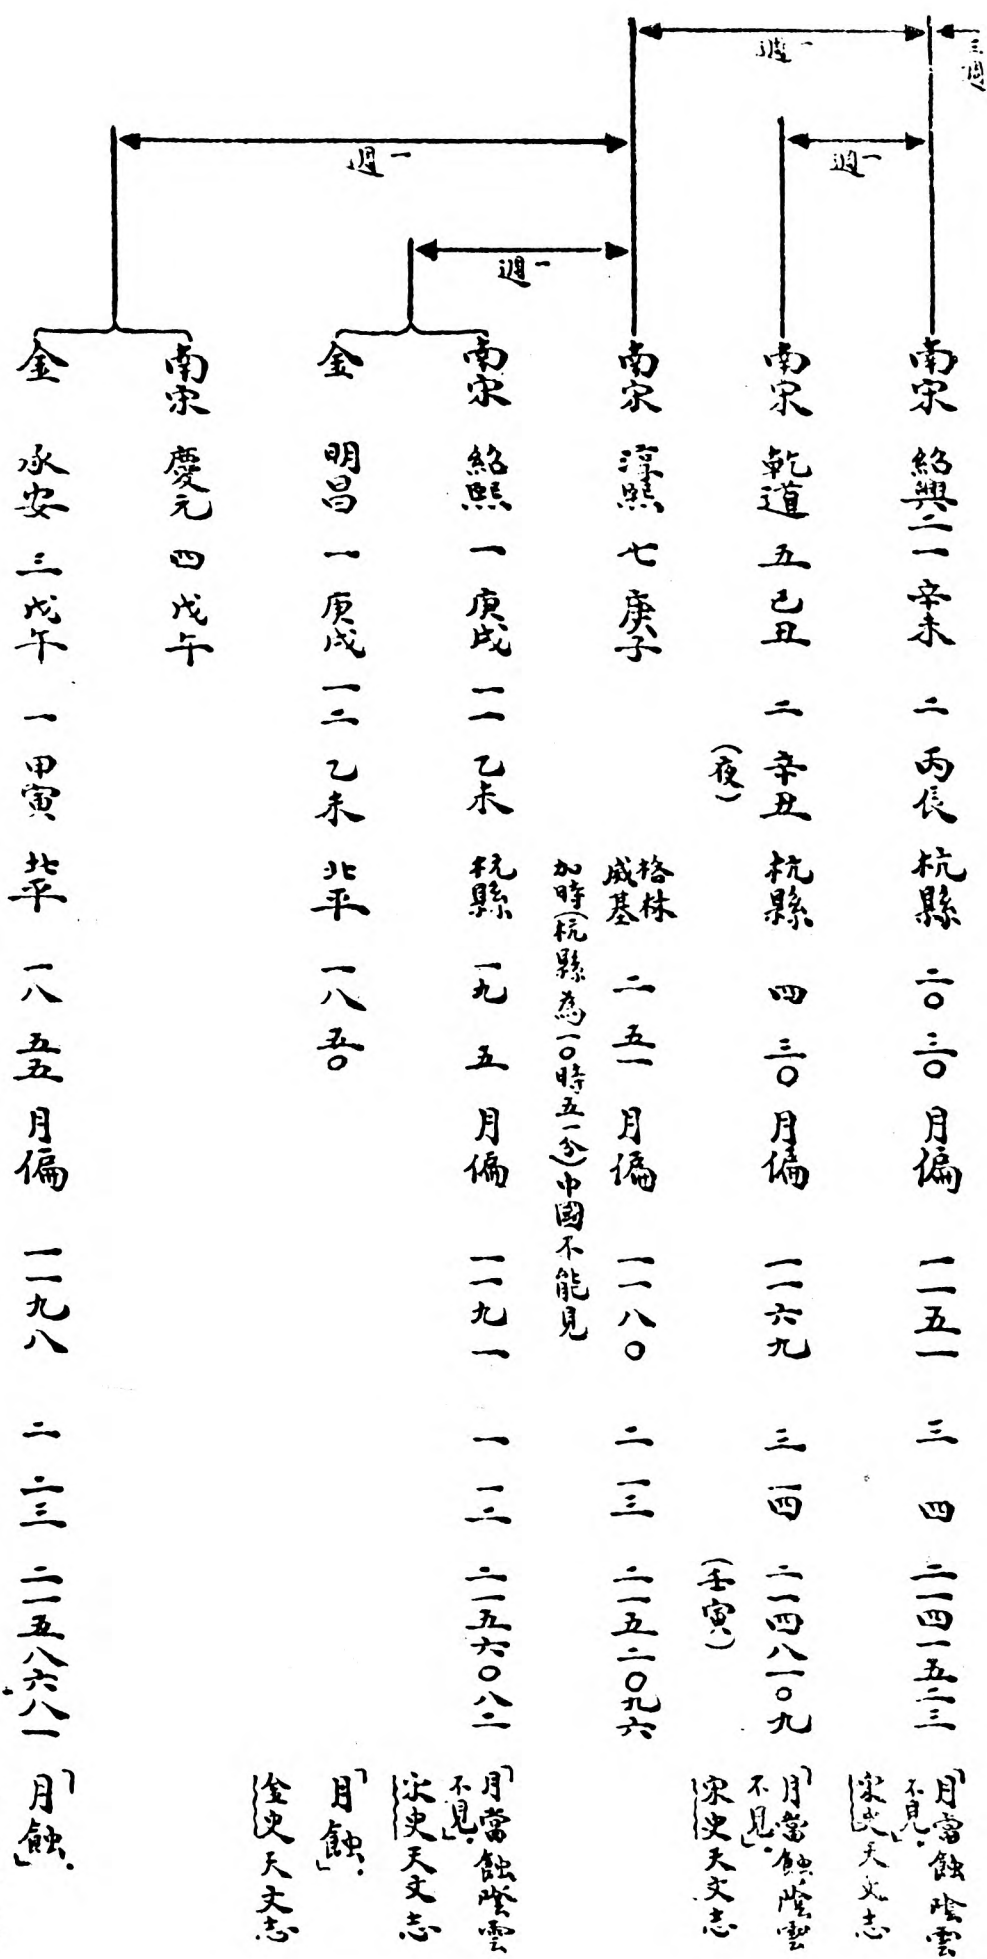 三週
一週
一週
一週
一週
南宋 紹興二一辛未 二 丙辰 杭縣 二〇 三〇 月偏 一一五一 三 四 二一四一五二三 「月當蝕陰雲
不見」。
宋史天文志
南宋 乾道 五 己丑 二 辛丑 杭縣 四 三〇 月偏 一一六九 三 一四 二一四八一〇九 「月當蝕陰雲
(夜) (壬寅) 不見」。
宋史天文志
南宋 淳熙 七 庚子 格林
威基 二 五一 月偏 一一八〇 二 一三 二一五二〇九六
加時(杭縣為一〇時五一分)中國不能見
南宋 紹熙 一 庚戌 一二 乙未 杭縣 一九 五 月偏 一一九一 一 一二 二一五六〇八二 「月當蝕陰雲
不見」。
宋史天文志
金 明昌 一 庚戌 一二 乙未 北平 一八 五〇 「月蝕」。
金史天文志
南宋 慶元 四 戊午
金 承安 三 戊午 一 甲寅 北平 一八 五五 月偏 一一九八 二 二三 二一五八六八一 「月蝕」。